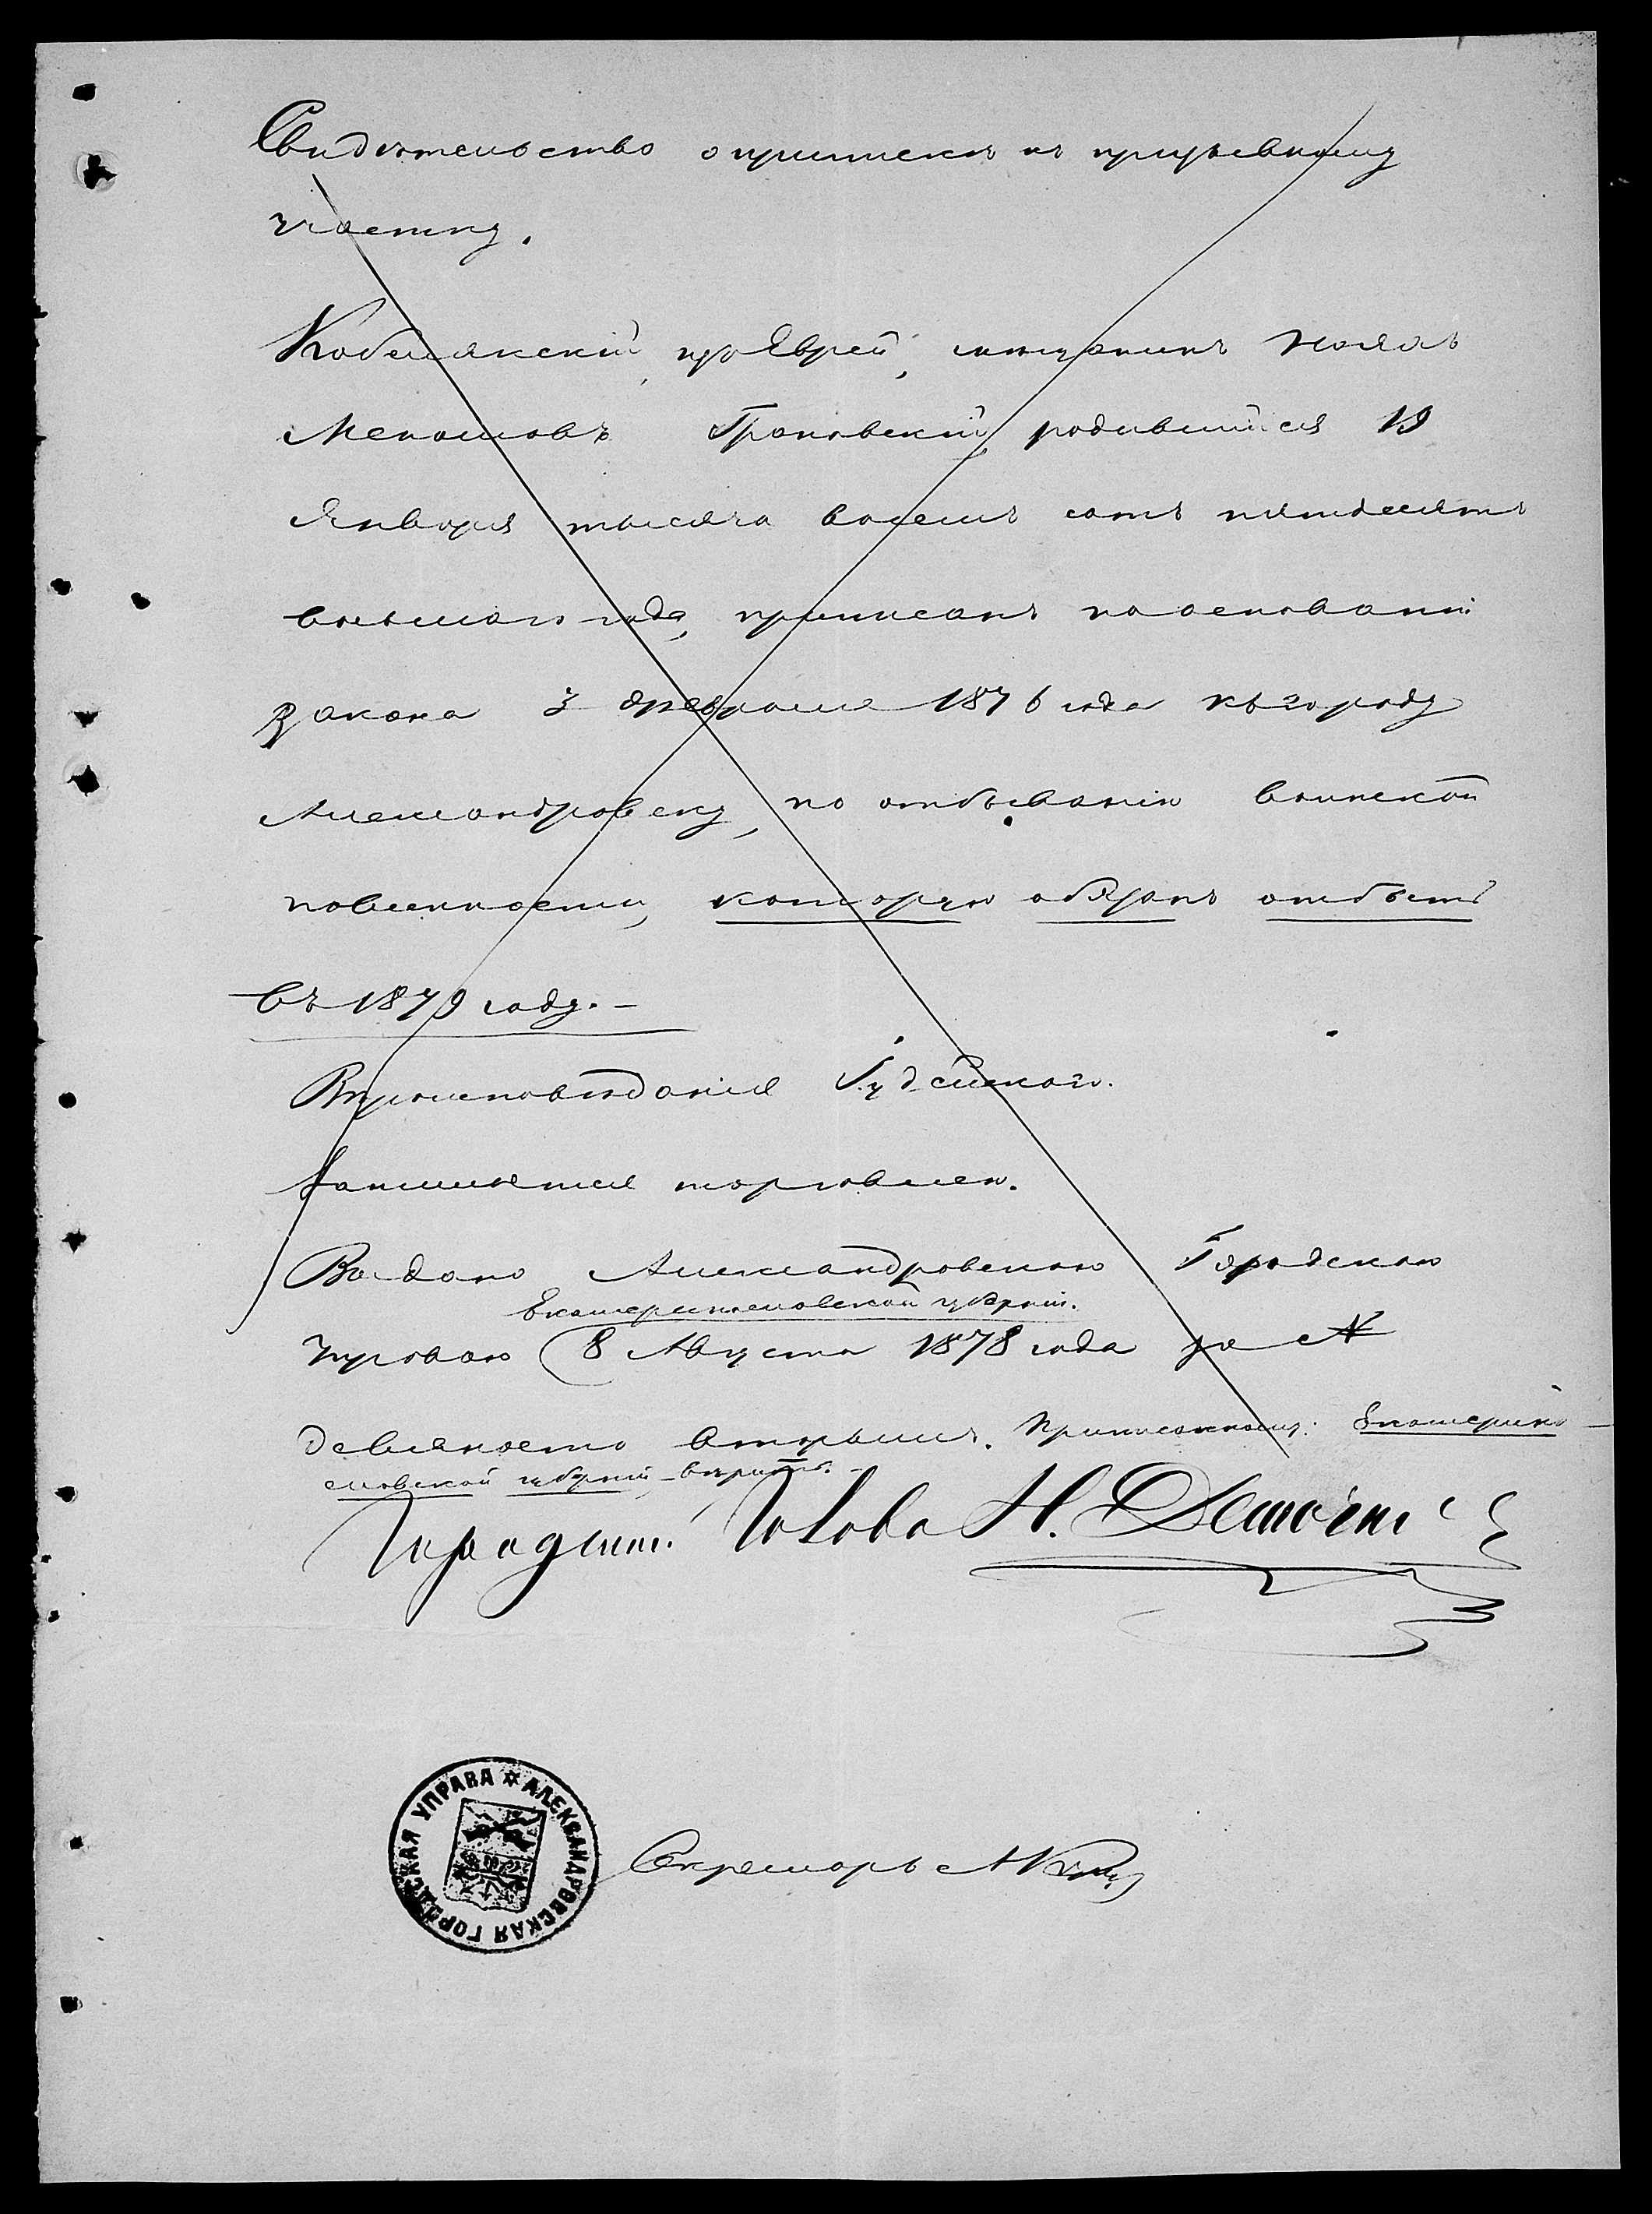 Свидѣтельство о припискѣ къ призывному
участку.
Кобелякскій, изъ Еврей, мѣщанинъ
Грановскій, родившійся 19
Января тысяча восемь сотъ пятьдесятъ
восьмаго года, приписанъ на основаніи
закона 3 февраля 1876 года къ городу
Александровску, по отбыванію воинской
повинности, которую обязанъ отбыть
въ 1879 году. —
Вѣроисповѣданія Іудейскаго.
Занимается торговлею.
Выдано Александровскою Городскою
Екатеринославской губерніи.
Управою 8 Августа 1878 года за №
девяносто вторымъ. Приписанному: Екатерино-
славской губерніи вѣрить. —
Городской Голова Н.
УПРАВА ✡ АЛЕКСАНДРОВСКАЯ ГОРОДСКАЯ
Секретарь